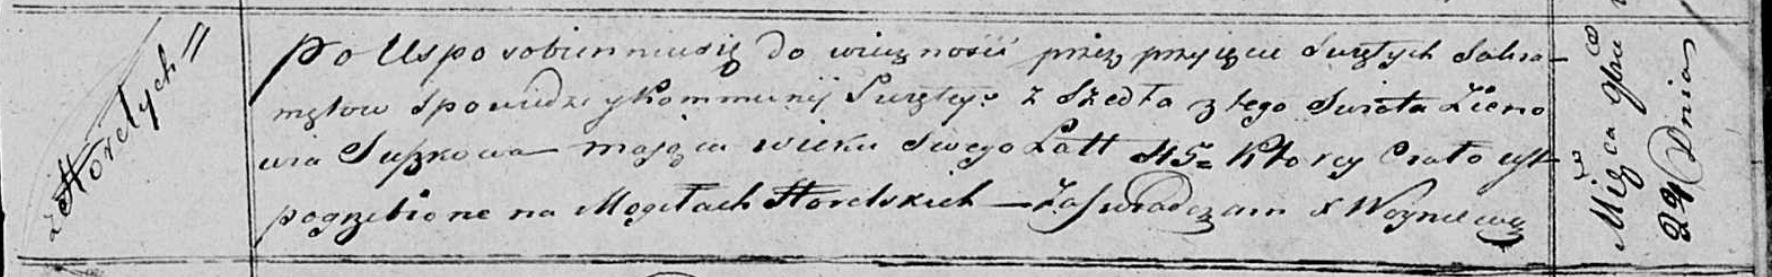 z Horełych
Po Usposobienniusię do wieczności przez przyięcie Swiętych Sakra-
mętow Spowiedzi y Kommunij Swiętey z Szedła z tego Swiata Zieno
wia Suszkowa maiąca wieku swego Latt 45 Ktorey Ciało iest
pogrzebione na Mogiłach Horelskich — Zaswiadczam X Woynicwic
Mięca
22 Dnia